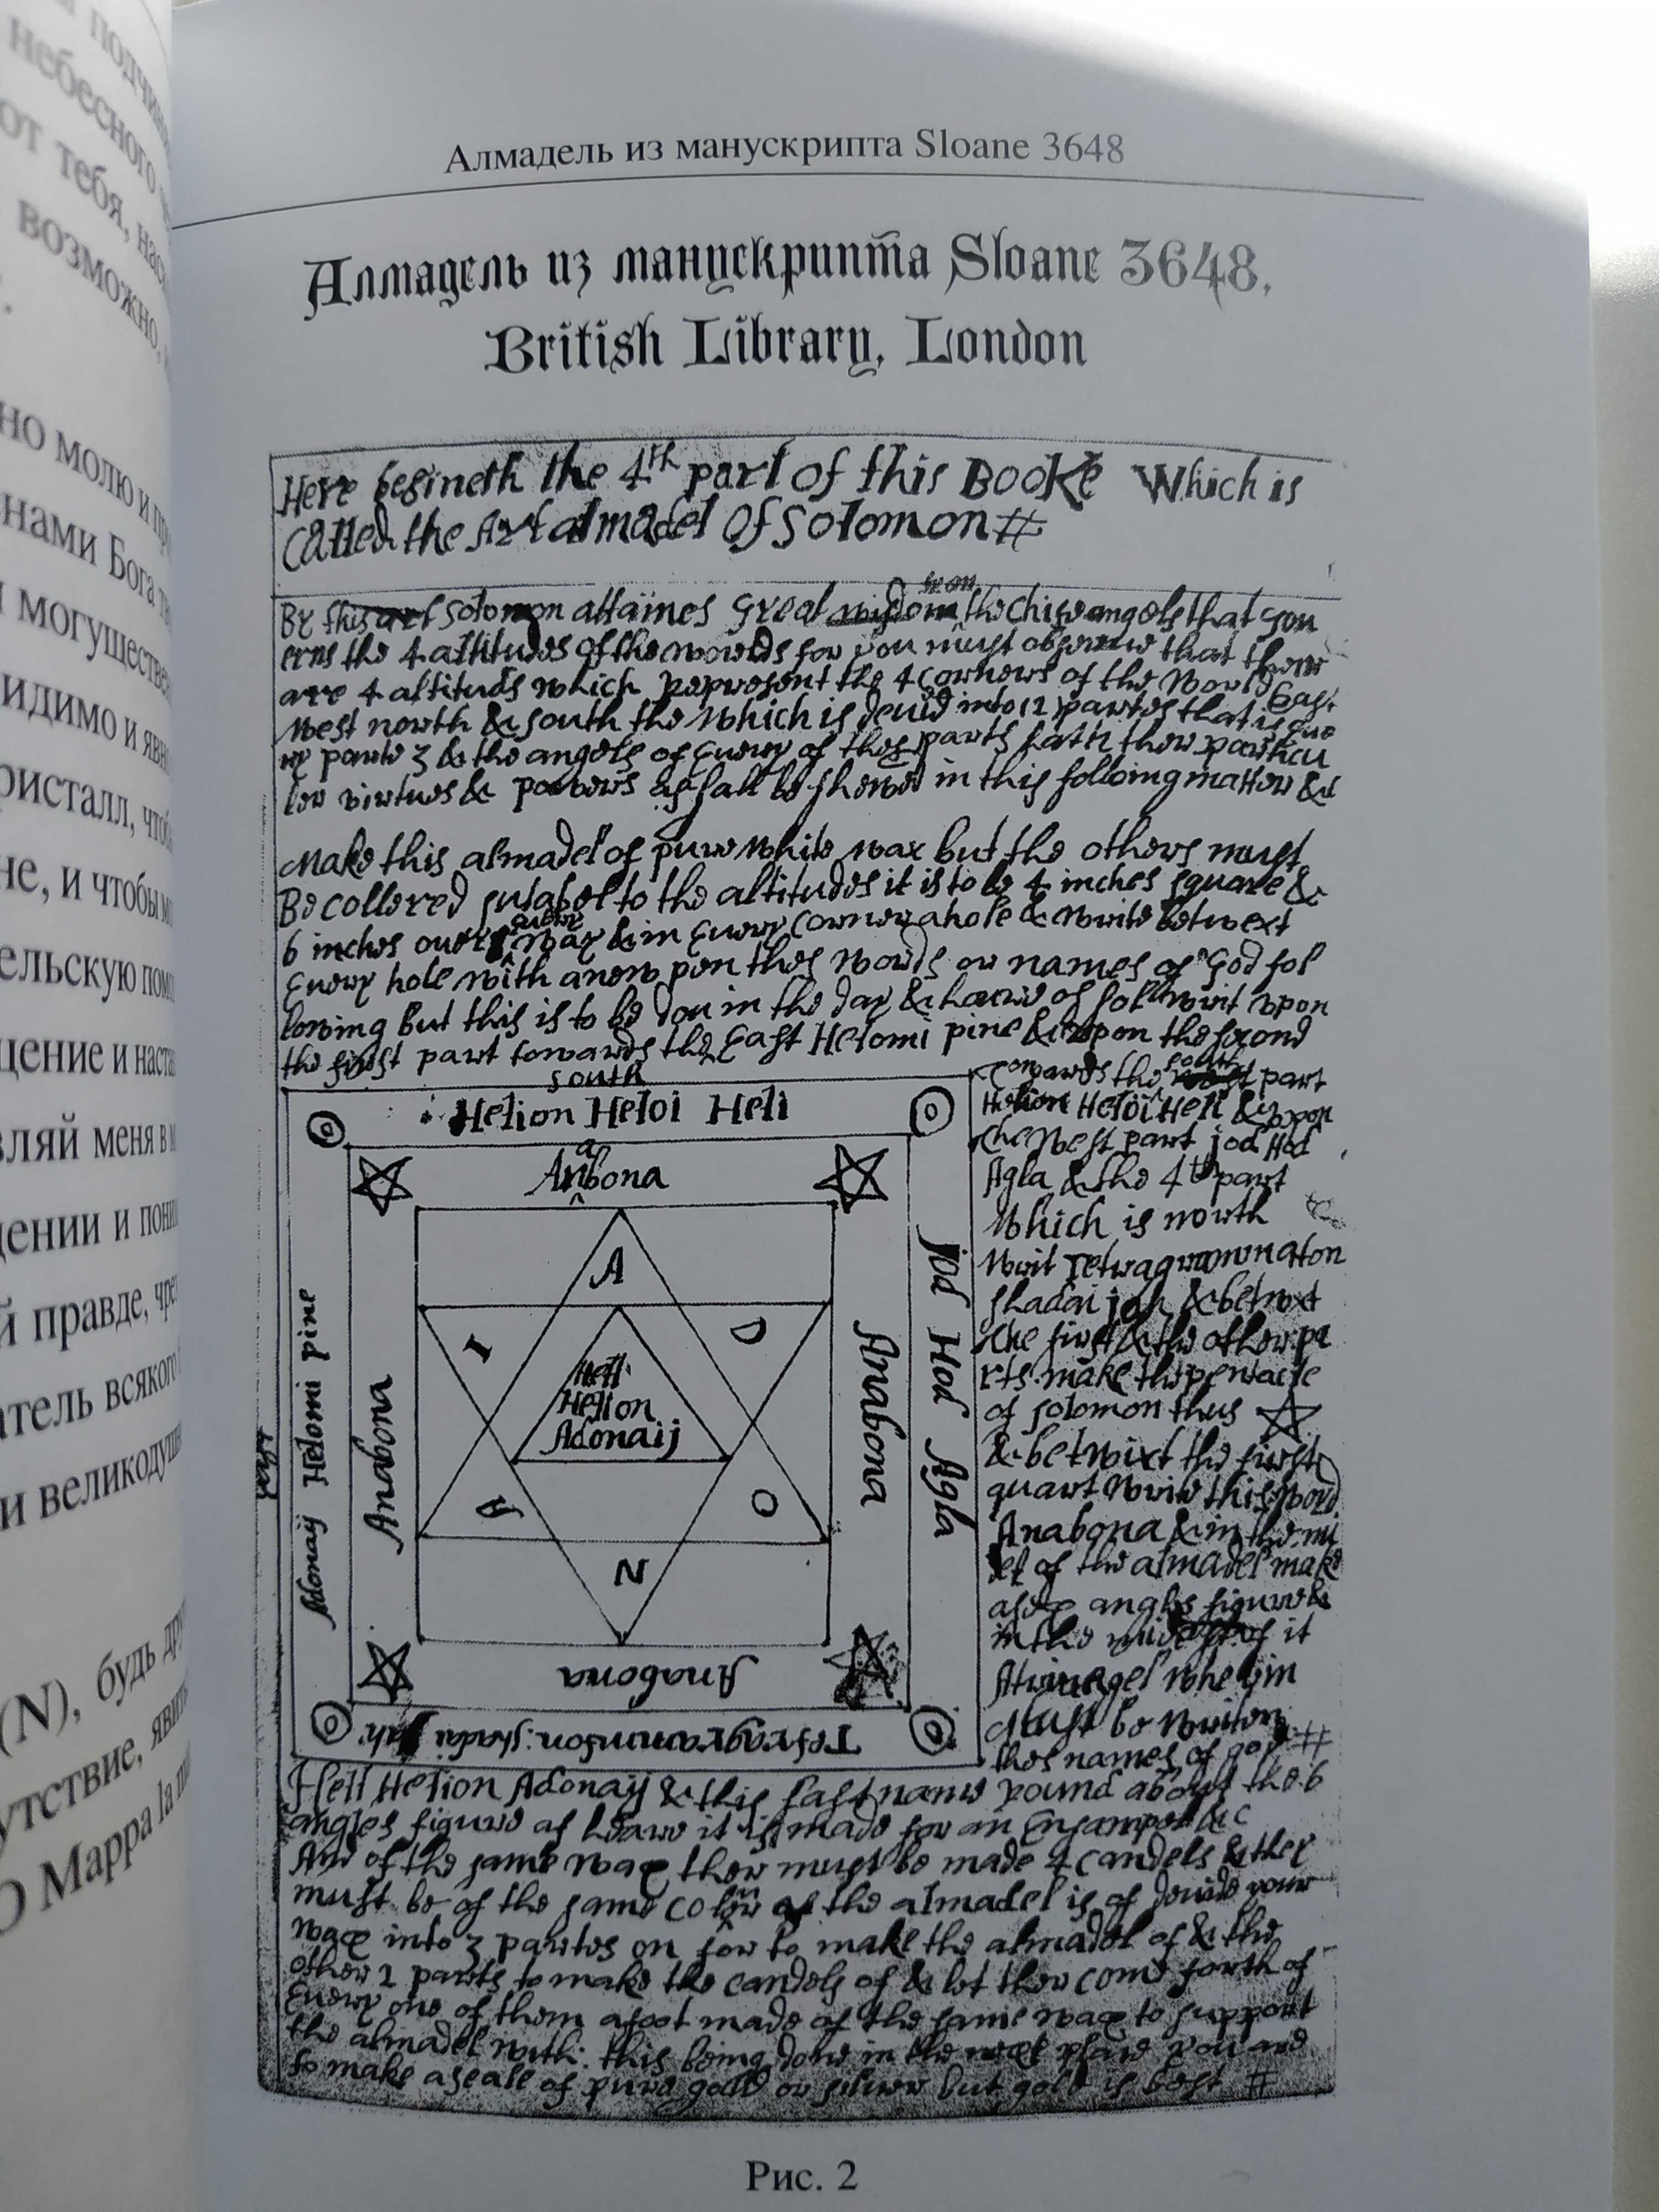 подчин
небесного
от тебя, нас
возможно,
но молю и пр
нами Бога
могуществе
идимо и явн
ристалл, чтоб
не, и чтобы м
ельскую пом
щение и наста
вляй меня в м
дении и пони
й правде, чре
атель всякого
и великодуш
(N), будь др
утствие, яви
О Марра la
Алмадель из манускрипта Sloane 3648
Алмадель из манускрипта Sloane 3648,
British Library, London
Here begineth the 4th part of this Booke Which is
Called the Art almadel Of Solomon #
By this art Solomon attaines Great wisdom from the chise angels that gou
erns the 4 altitudes of the worlds for you must observe that there
are 4 altituds which represent the 4 corners of the World East
West north & South the Which is deuid into 12 partes that is eue
ry parte 3 & the angels of Euery of thes parts hath ther particu
ler virtues & powers as shall be shewed in this following matter &c
Make this almadel of pure white wax but the others must
Be collered sutabel to the altitudes it is to be 4 inches square &
6 inches ouer euery way & in Euery Corner a hole & write betwext
Euery hole with a new pen thes words or names of God fol
lowing But this is to be don in the day & houre of Sol writ upon
the first part towards the East Helomi pine & upon the second
towards the south part
Helion Heloi Heli & upon
the West part jod Hod
Agla & the 4th part
Which is north
Writ Tetragrammaton
shadai jah & betwext
the first & the other pa
rts make the pentacle
of solomon thus
& betwixt the first
quart Write this Word
Anabona & in the mi
del of the almadel make
a six angles figure &
in the of it
A Wherin
Must be Writen
thes names of god #
south
Helion Heloi Heli
Anabona
a
Adonay Helomi pine
Anabona
A
I
D
Hell
Helion
Adonaij
A
O
N
Anabona
Jod Hod Agla
Anabona
Tetragrammaton: shadai jah
Hell Helion Adonaij & this last name round about the 6
angles figure as heare it is made for an Ensampel &c
And of the same wax ther must be made 4 Candels & they
must be of the same Colour as the almadel is of deuide your
wax into 3 partes on for to make the almadel of & the
other 2 parts to make the candels of & let ther come forth of
Euery one of them a foot made of the same wax to support
the almadel with: this being done in the next place you are
to make a seale of pure gold or siluer but gold is best #
Рис. 2